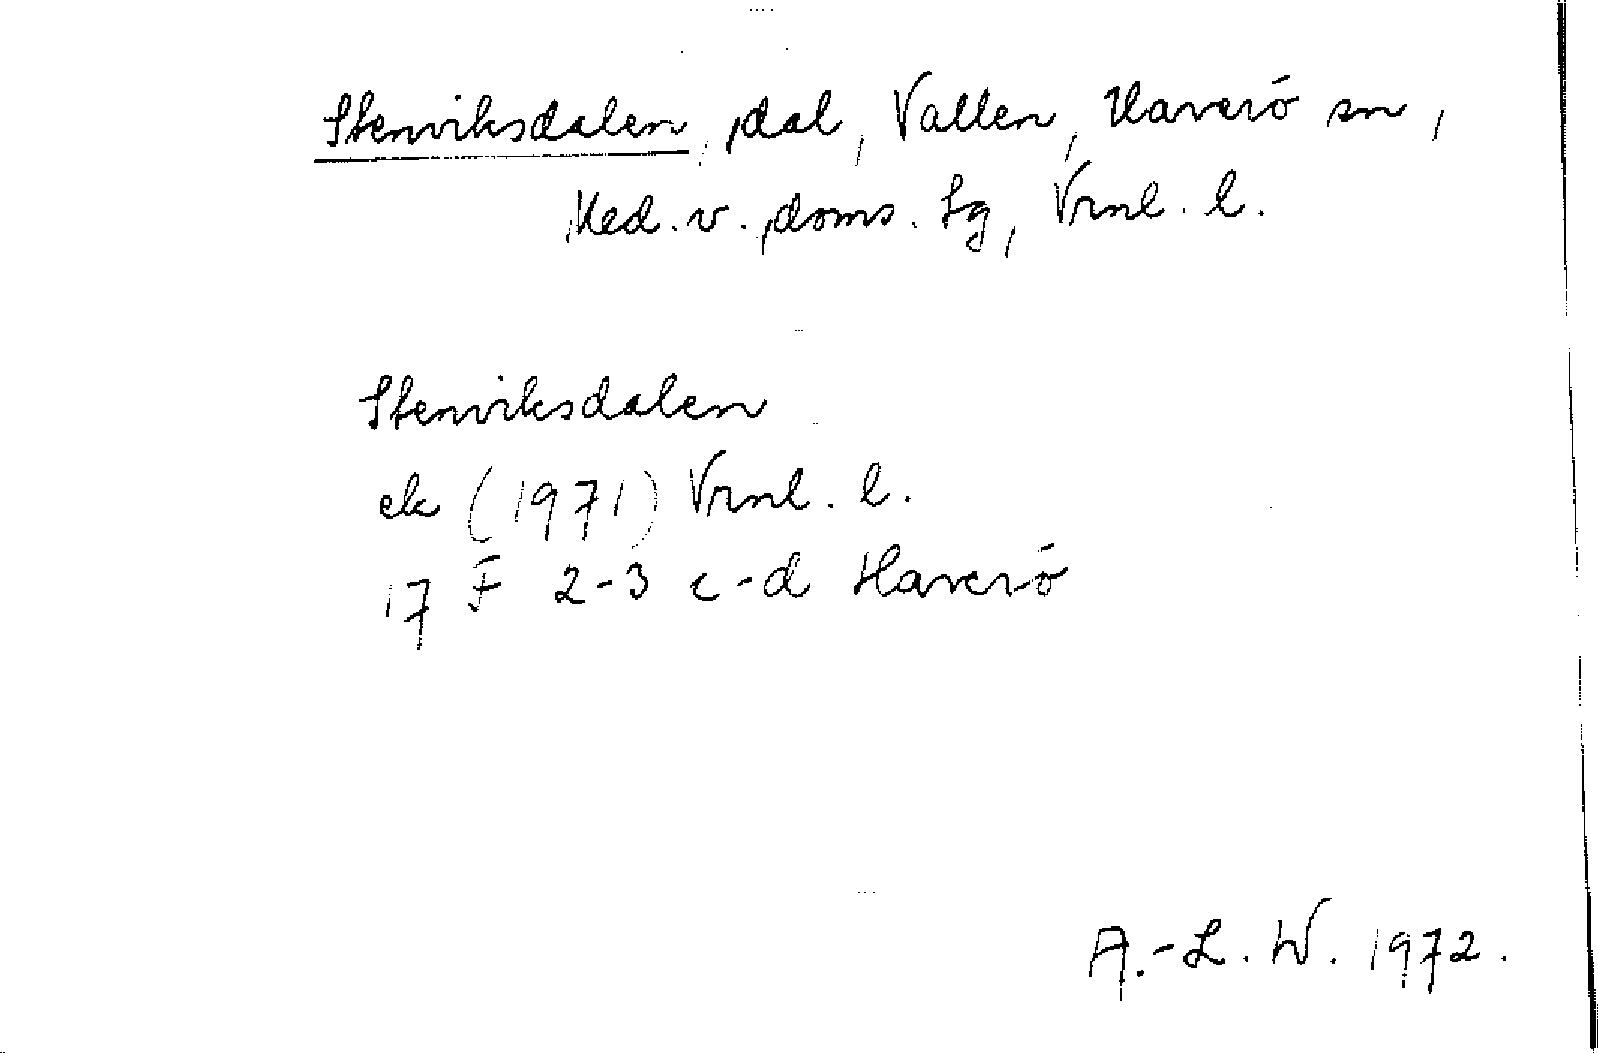 Stenviksdalen, dal, Vallen, Haverö sn,
Med. v. doms. tg, Vrnl. l.
Stenviksdalen
ek (1971) Vrnl. l.
17 F 2-3 c-d Haverö
A.-L. W. 1972.